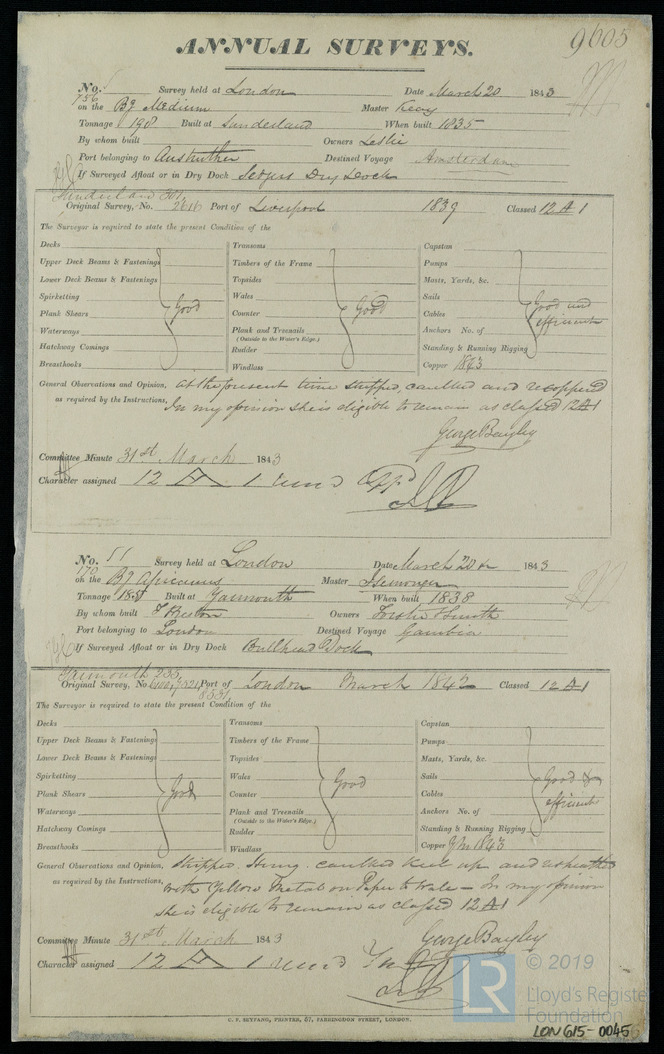 ANNUAL SURVEYS.
9605
No. Survey held at London Date March 20 1843
756
on the Bg Medium Master Keay
Tonnage 198 Built at Sunderland When built 1835
By whom built Owners Leslie
Port belonging to Anstruther Destined Voyage Amsterdam
If Surveyed Afloat or in Dry Dock Dry Dock
Sunderland 301
Original Survey, No. 2616 Port of Liverpool 1839 Classed 12 A 1
The Surveyor is required to state the present Condition of the
Decks Transoms Capstan
Upper Deck Beams & Fastenings Timbers of the Frame Pumps
Lower Deck Beams & Fastenings Topsides Masts, Yards, &c.
Spirketting Wales Sails
Plank Shears Good Counter Good Cables Good and efficient
Waterways Plank and Treenails Anchors No. of
(Outside to the Water's Edge.)
Hatchway Comings Rudder Standing & Running Rigging
Breasthooks Windlass Copper 1843
General Observations and Opinion, at the present time stripped, caulked and recoppered
as required by the Instructions, In my opinion she is eligible to remain as classed 12 A 1
George Bayley
Committee Minute 31st March 1843
Character assigned 12 A 1
No. 51 Survey held at London Date March 20 1843
170
on the Bg Africanus Master Isemonger
Tonnage 188 Built at Yarmouth When built 1838
By whom built T Preston Owners Forster & Smith
Port belonging to London Destined Voyage Gambia
If Surveyed Afloat or in Dry Dock Bullhead Dock
Yarmouth 235
Original Survey, No. 7321 Port of London March 1842 Classed 12 A 1
8531
The Surveyor is required to state the present Condition of the
Decks Transoms Capstan
Upper Deck Beams & Fastenings Timbers of the Frame Pumps
Lower Deck Beams & Fastenings Topsides Masts, Yards, &c.
Spirketting Wales Sails Good &
Plank Shears Good Counter Good Cables efficient
Waterways Plank and Treenails Anchors No. of
(Outside to the Water's Edge.)
Hatchway Comings Rudder Standing & Running Rigging
Breasthooks Windlass Copper 1843
General Observations and Opinion, stripped, caulked keel up and
as required by the Instructions, with Yellow Metal on Paper to Wale - In my opinion
she is eligible to remain as classed 12 A 1
George Bayley
Committee Minute 31st March 1843
Character assigned 12 A 1
LR © 2019
Lloyd's Register
Foundation
C. F. SEYFANG, PRINTER, 57, FARRINGDON STREET, LONDON.
LON 615-0045